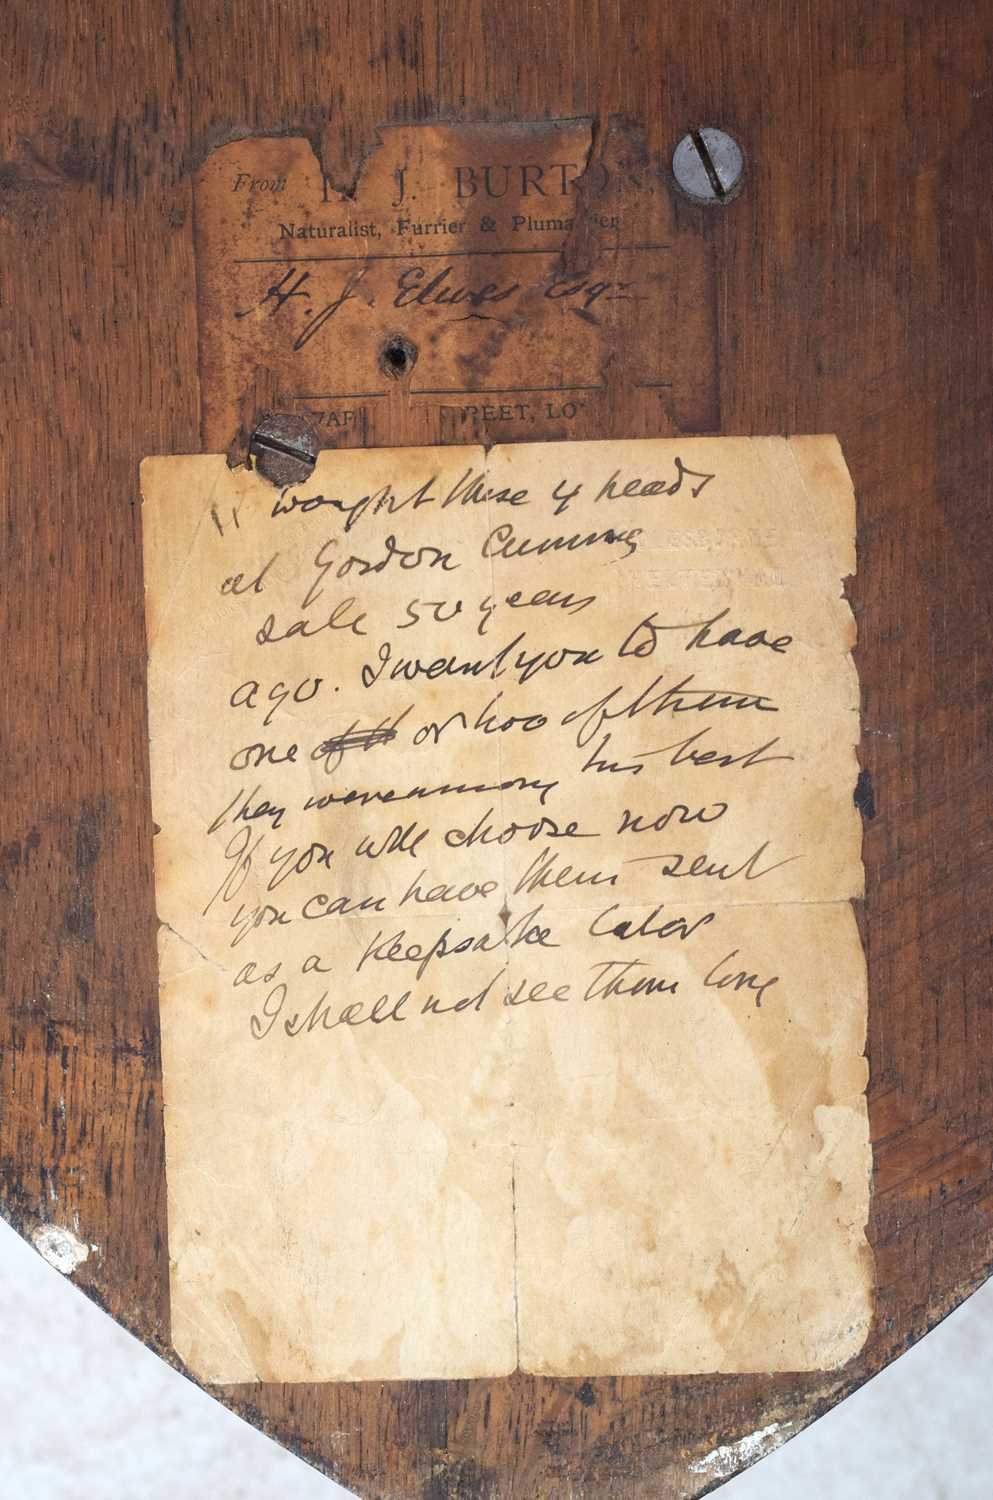 From H. J. BURTON
Naturalist, Furrier & Plumassier
H. J. Elwes Esqr
STREET, LO
I bought these 4 heads
at Gordon Cumming
sale 50 years
ago. I want you to have
one of th or two of them
they were among his best
If you will choose now
you can have them sent
as a keepsake later
I shall not see them long